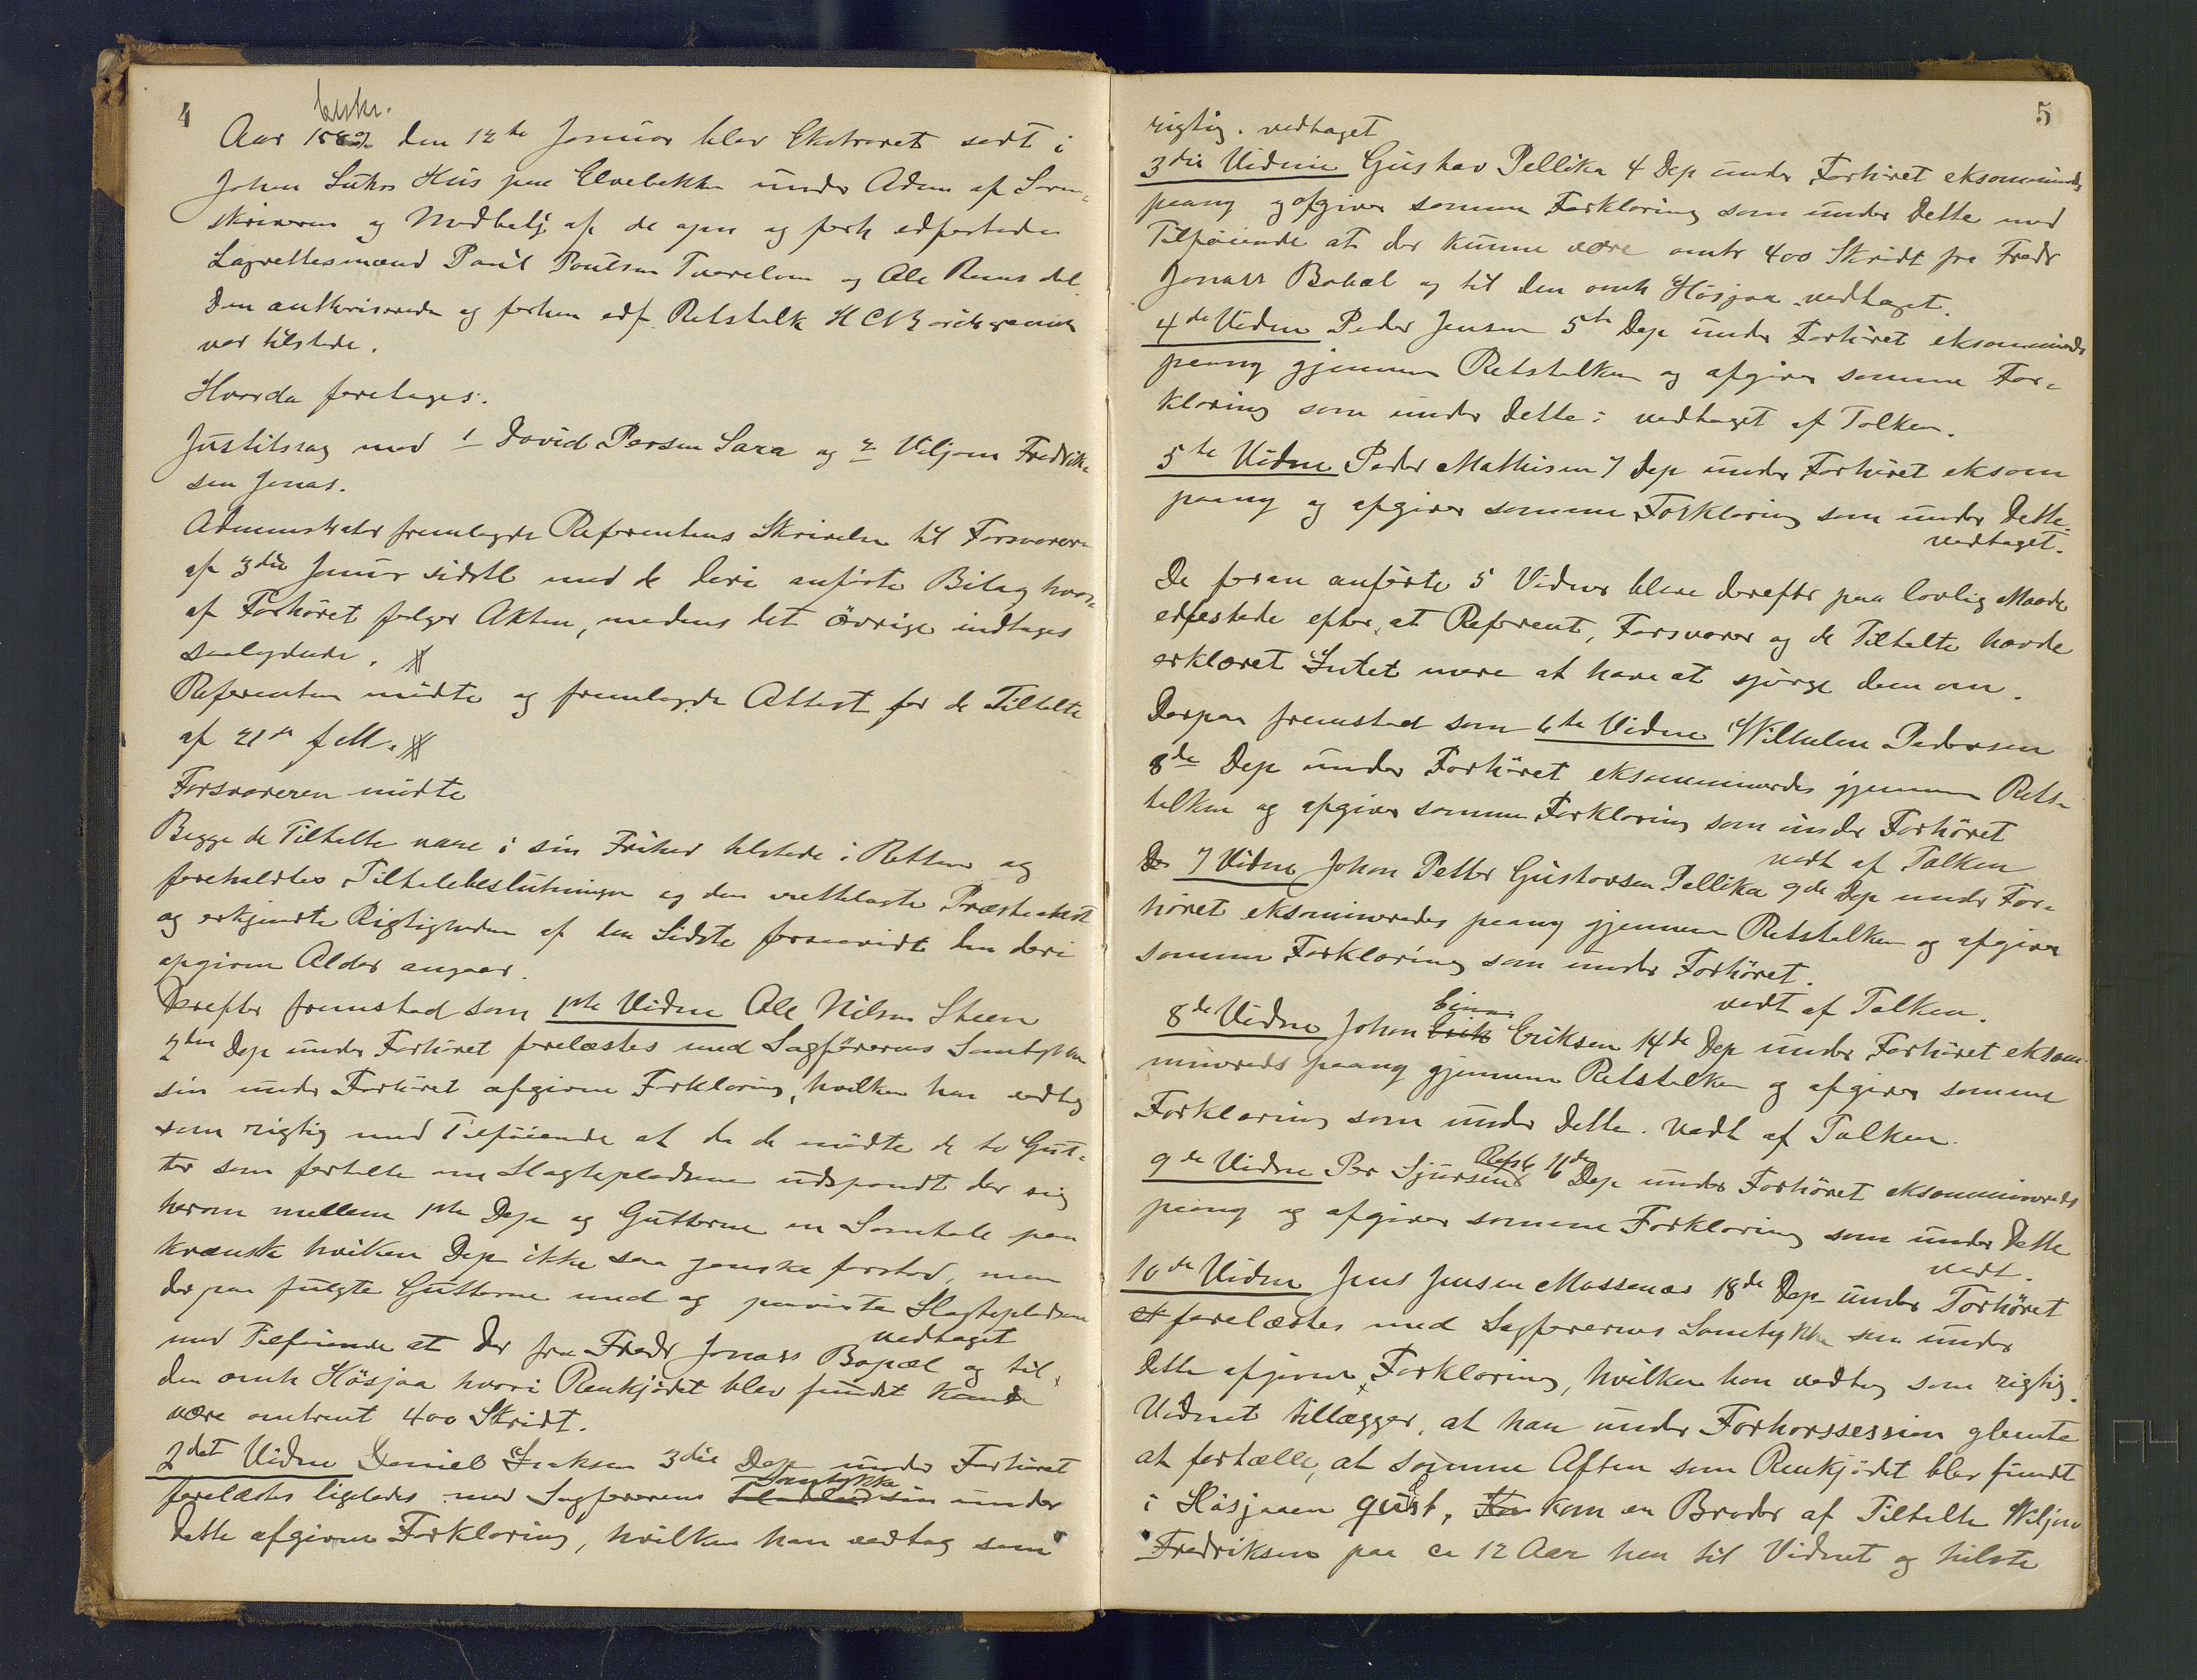 4
beskr.
Aar 1882 den 12te Januar blev Ekstraret sadt i
Johan Hus paa Elvebakken under Adm af Soren¬
skriveren og Medhelj af de opn og forh edfæstede
Lagrettesmænd Paul Poulsen Tverelven og Ole
Den authoriserede og forhen edf. Retstolk H C
var tilstede.
Hvorda foretages:
Justitssag mod 1 David Persen Sara og 2 Viljam Fredrik¬
sen Jonas.
Administrator fremlagde Referentens Skrivelse til Forsvareren
af 3die Januar sidstl med de deri anførte Bilag hvor¬
af Forhöret følger Akten, medens det Övrige indtages
saalydende.
Referenten mödte og fremlagde Attest for de Tiltalte
af 21de f M.
Forsvareren mödte
Begge de Tiltalte vare i sin Frihed tilstede i Retten og
foreholdtes Tiltalebeslutningen og den Præsteattest
og erkjendte Rigtigheden af den Sidste forsaavidt den deri
opgivne Alder angaar.
Derefter fremstod som 1ste Vidne Ole Nilsen Steen
2den Dep under Forhöret forelæstes med Sagførerens Samtykke
sin under Forhöret afgivne Forklaring, hvilken han vedtog
som rigtig med Tilföiende at da de mödte de to Gut¬
ter som fortalte om Slagtepladsene udspandt der sig
herom mellem 1ste Dep og Gutterne en Samtale paa
kvænsk hvilken Dep ikke saa ganske forstod, men
derpaa fulgte Gutterne med og paaviste Slagtepladsen
vedtaget
med Tilföiende at der fra Fredr Jonass Bopæl og til
den omh Hösjaa hvori Renkjödet blev fundet kunde
være omtrent 400 Skridt.
2det Vidne Daniel Isaksen 3die Dep under Forhöret
Samtykke
forelæstes ligeledes med Sagförerens sin under
Dette afgivne Forklaring, hvilken han vedtog som
5
rigtig. vedtaget
3die Vidne Gustav Pellika 4 Dep under Forhöret eksamineredes
paany og afgiver samme Forklaring som under Dette med
Tilföiende at der kunne være omtr 400 Skridt fra Fredr
Jonass Bopæl og til den omh Hösjaa. vedtaget.
4de Vidne Peder Jensen 5te Dep under Forhöret eksamineredes
paany gjennem Retstolken og afgiver samme For¬
klaring som under Dette: vedtaget af Tolken.
5te Vidne Peder Mathisen 7 Dep under Forhöret eksam
paany og afgiver samme Forklaring som under Dette.
vedtaget.
De foran anförte 5 Vidner bleve derefter paa lovlig Maade
edfæstede efter, at Referent, Forsvarer og de Tiltalte havde
erklæret Intet mere at have at spörge dem om.
Derpaa fremstod som 6te Vidne Wilhelm Pedersen
8de Dep under Forhöret eksamineredes gjennem Rets¬
tolken og afgiver samme Forklaring som under Forhöret
vedt af Tolken
7 Vidne Johan Petter Gustavsen Pellika 9de Dep under For¬
höret eksamineredes paany gjennem Retstolken og afgiver
samme Forklaring som under Forhöret.
vedt af Tolken.
Einar
8de Vidne Johan Erik Eriksen 14de Dep under Forhöret eksam
mineredes paany gjennem Retstolken og afgiver samme
Forklaring som under Dette. vedt af Tolken.
9de Vidne Per Sjursen 16de Dep under Forhöret eksamineredes
paany og afgiver samme Forklaring som under Dette
vedt.
10de Vidne Jens Jensen 18de Dep under Forhöret
forelæstes med Sagførerens Samtykke sin under
Dette afgivne Forklaring, hvilken han vedtog som rigtig.
Vidnet tillægger, at han under Forhørssession glemte
at fortælle, at samme Aften som Renkjödet blev fundt
i Hösjaaen kom en Broder af Tiltalte Wiljam
Fredriksen paa ca 12 Aar hen til Vidnet og hilste